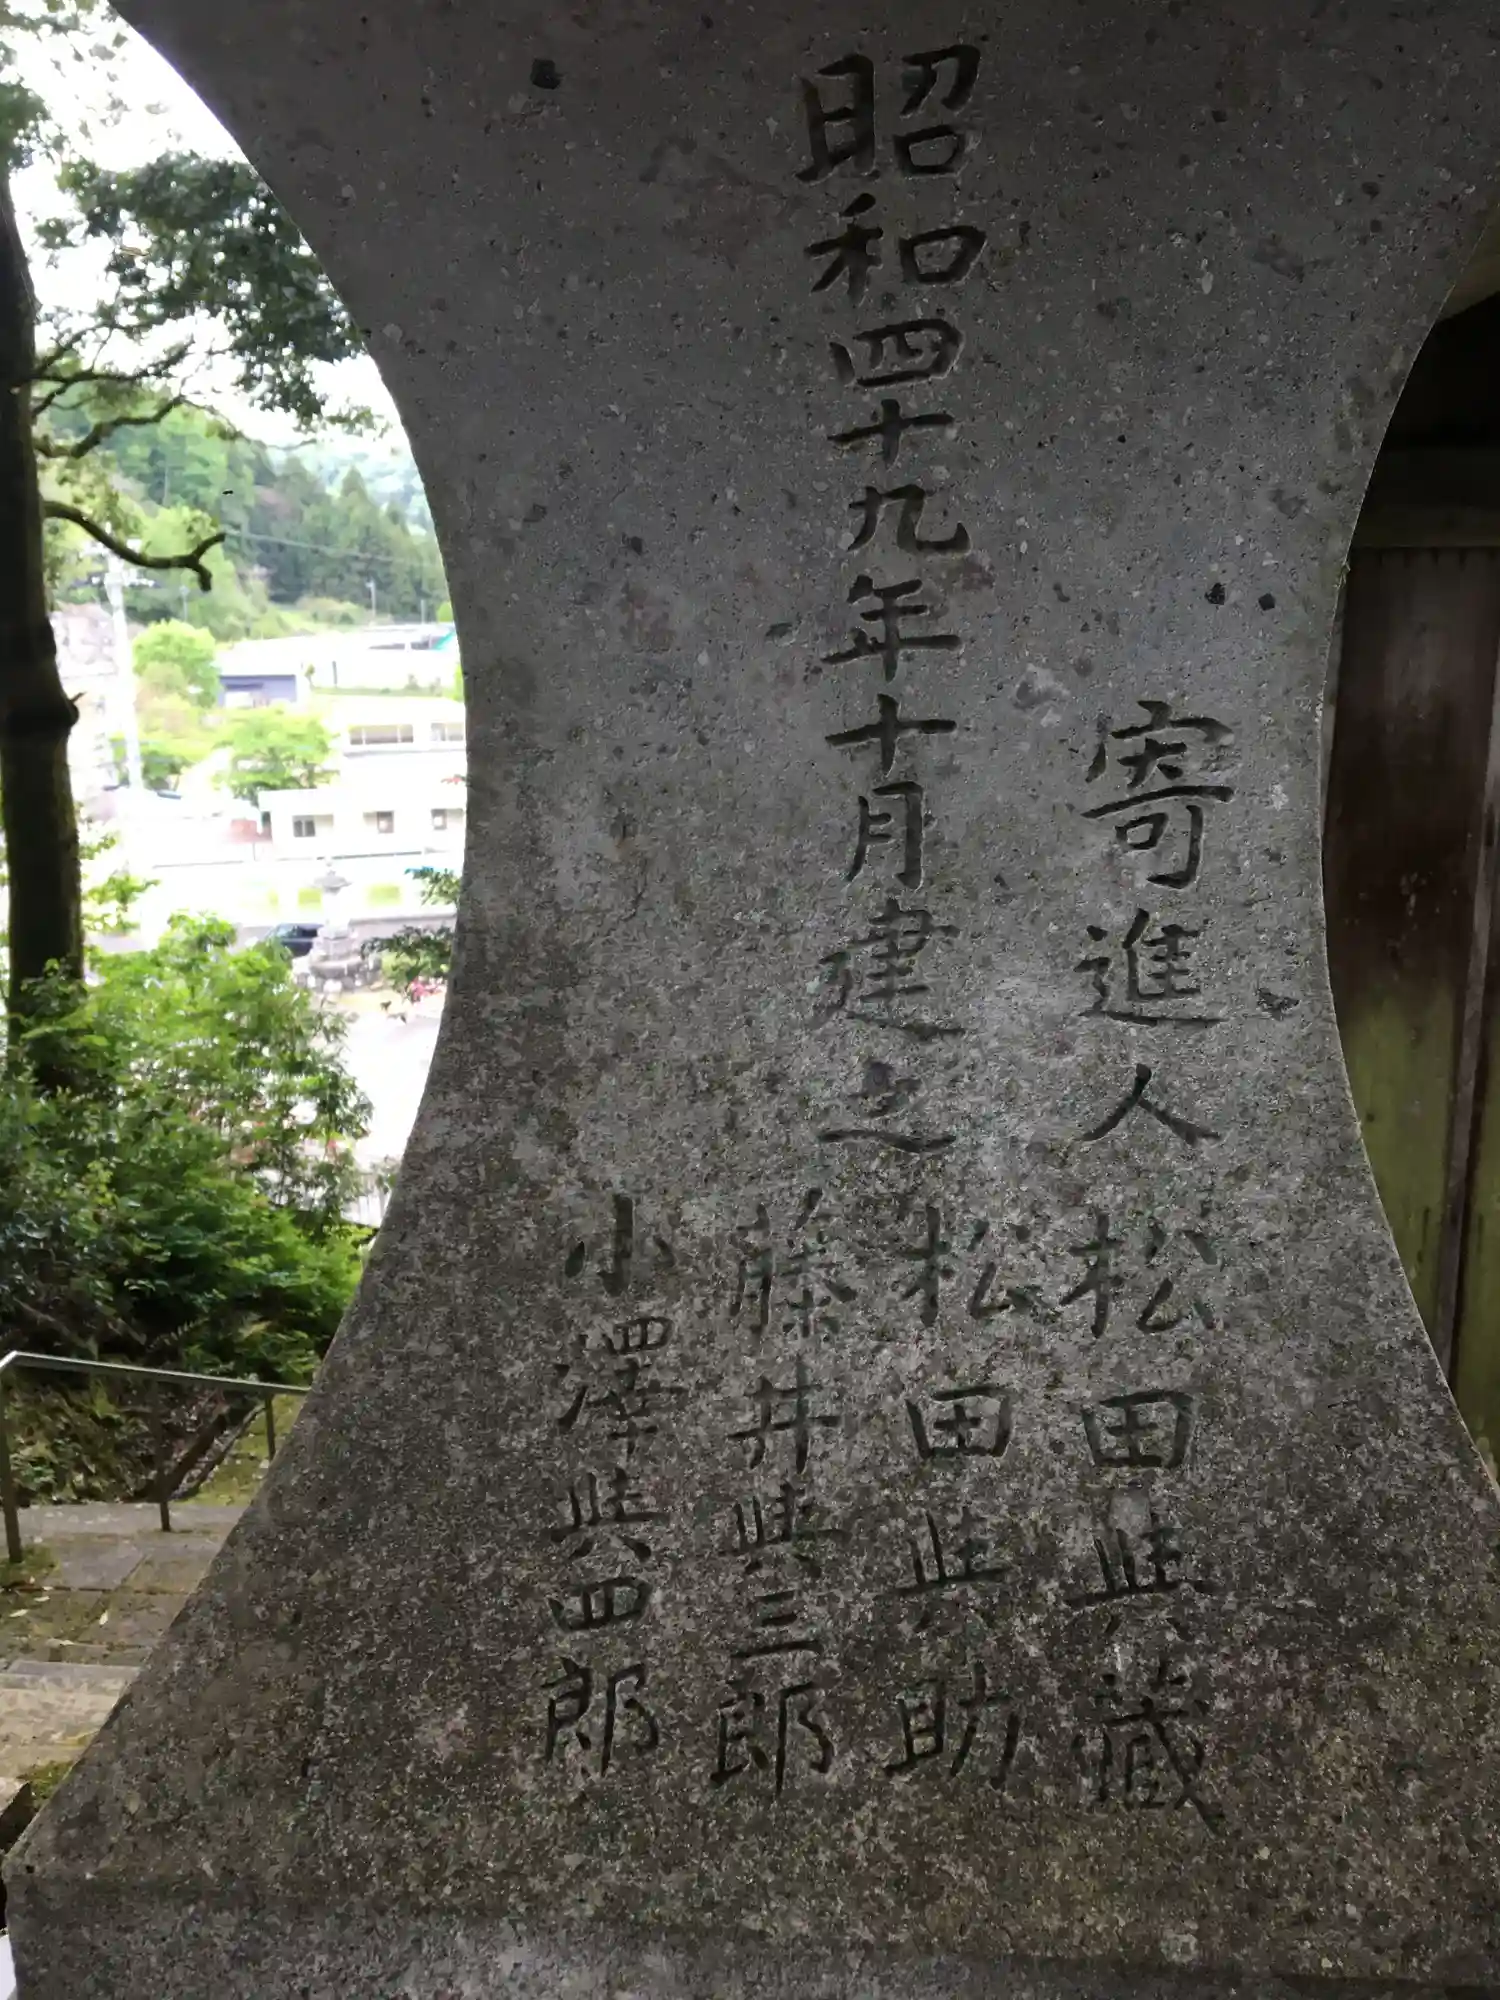 昭和四十九年十月建之
寄進人松田與藏
松田與助
藤井與三郎
小澤與四郎